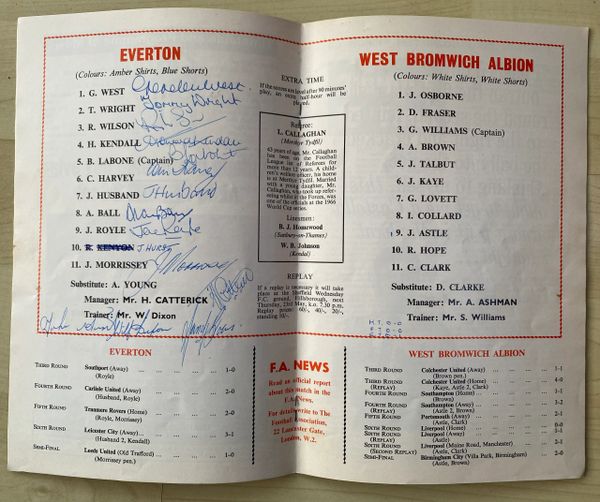 EVERTON
(Colours: Amber Shirts, Blue Shorts)
1. G. WEST
2. T. WRIGHT Tommy Wright
3. R. WILSON
4. H. KENDALL Howard Kendall
5. B. LABONE (Captain)
6. C. HARVEY
7. J. HUSBAND J Husband
8. A. BALL Alan Ball
9. J. ROYLE Joe Royle
10. R. KENYON J. HURST
11. J. MORRISSEY J Morrissey
Substitute: A. YOUNG
Manager: Mr. H. CATTERICK
Trainer: Mr. W. Dixon
EXTRA TIME
If the scores are level after 90 minutes'
play, an extra half-hour will be
played.
Referee:
L. CALLAGHAN
(Merthyr Tydfil)
43 years of age, Mr. Callaghan
has been on the Football
League list of Referees for
more than 12 years. A child-
ren's welfare officer, his home
is at Merthyr Tydfil. Married
with a young daughter, Mr.
Callaghan, who took up refer-
eeing whilst in the Forces, was
one of the officials at the 1966
World Cup series.
Linesmen:
B. J. Homewood
(Sunbury-on-Thames)
W. B. Johnson
(Kendal)
REPLAY
If a replay is necessary it will take
place at the Sheffield Wednesday
F.C. ground, Hillsborough, next
Thursday, 23rd May, k.o. 7.30 p.m.
Replay prices: 60/-, 40/-, 20/-,
standing 10/-.
WEST BROMWICH ALBION
(Colours: White Shirts, White Shorts)
1. J. OSBORNE
2. D. FRASER
3. G. WILLIAMS (Captain)
4. A. BROWN
5. J. TALBUT
6. J. KAYE
7. G. LOVETT
8. I. COLLARD
1 9. J. ASTLE
10. R. HOPE
11. C. CLARK
Substitute: D. CLARKE
Manager: Mr. A. ASHMAN
Trainer: Mr. S. Williams
H.T. 0-0
EVERTON
THIRD ROUND Southport (Away) ... 1-0
(Royle)
FOURTH ROUND Carlisle United (Away) ... 2-0
(Husband, Royle)
FIFTH ROUND Tranmere Rovers (Home) ... 2-0
(Royle, Morrissey)
SIXTH ROUND Leicester City (Away) ... 3-1
(Husband 2, Kendall)
SEMI-FINAL Leeds United (Old Trafford) ... 1-0
(Morrissey pen.)
F.A. NEWS
Read an official report
about this match in the
F.A. News.
For details write to The
Football Association,
22 Lancaster Gate,
London, W.2.
WEST BROMWICH ALBION
THIRD ROUND Colchester United (Away) ... 1-1
(Brown pen.)
THIRD ROUND Colchester United (Home) ... 4-0
(REPLAY) (Kaye, Astle 2, Clark)
FOURTH ROUND Southampton (Home) ... 1-1
(Brown)
FOURTH ROUND Southampton (Away) ... 3-2
(REPLAY) (Astle 2, Brown)
FIFTH ROUND Portsmouth (Away) ... 2-1
(Astle, Clark)
SIXTH ROUND Liverpool (Home) ... 0-0
SIXTH ROUND Liverpool (Away) ... 1-1
(REPLAY) (Astle)
SIXTH ROUND Liverpool (Maine Road, Manchester) ... 2-1
(SECOND REPLAY) (Astle, Clark)
SEMI-FINAL Birmingham City (Villa Park, Birmingham) ... 2-0
(Astle, Brown)